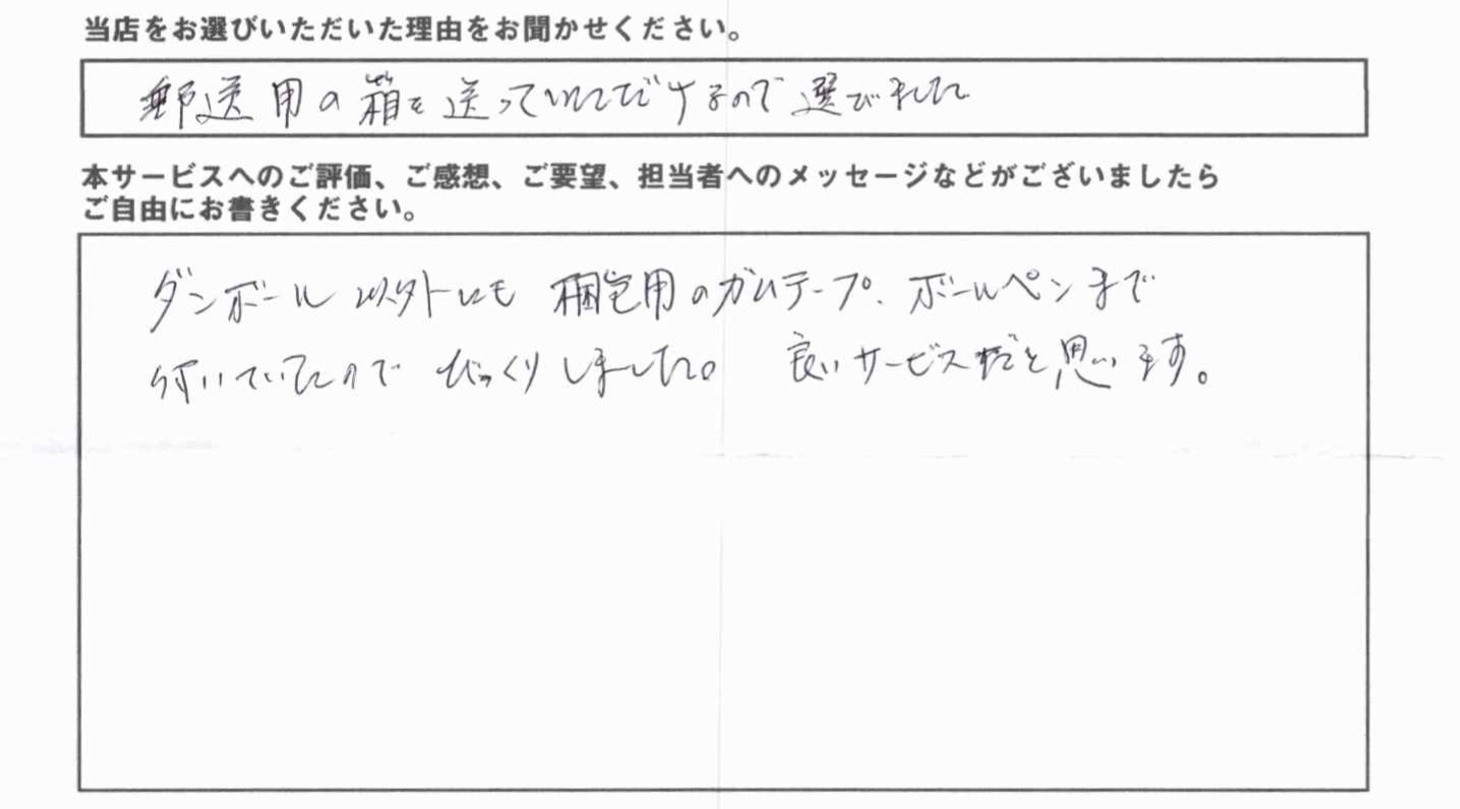 当店をお選びいただいた理由をお聞かせください。
郵送用の箱を送っていただけるので選びました
本サービスへのご評価、ご感想、ご要望、担当者へのメッセージなどがございましたら
ご自由にお書きください。
ダンボール以外にも 梱包用のガムテープ、ボールペンまで
付いていたので びっくりしました。 良いサービスだと思います。